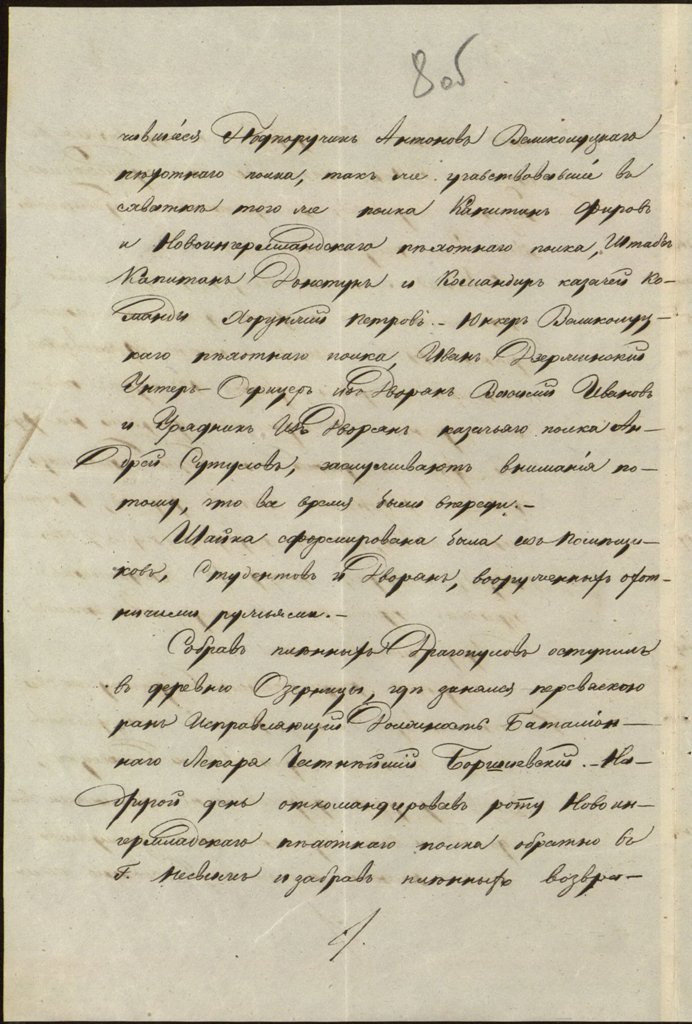 8 об
чившiеся Подпоручикъ Антоновъ Великолуцкаго
пѣхотнаго полка, такъ же участвовавшiе въ
схваткѣ того же полка Капитанъ Фировъ
и Новоингермландскаго пѣхотнаго полка, Штабсъ
Капитанъ и Командиръ казачей Ко-
манды Хорунжiй Петровъ. - Юнкеръ Великолуц-
каго пѣхотнаго полка, Иванъ Дзержинскiй
Унтеръ-Офицеръ изъ Дворянъ Василiй Ивановъ
и Урядникъ изъ Дворянъ казачьяго полка Ан-
дрей Сутуловъ, заслуживаютъ вниманiя по-
тому, что все время были впереди. -
Шайка сформирована была изъ помѣщи-
ковъ, Студентовъ и Дворянъ, вооруженныхъ охот-
ничими ружьями. -
Собравъ плѣнныхъ Драгопуловъ отступилъ
въ деревню Озерницы, гдѣ занялся перевязкою
ранъ Исправляющiй Должность Баталiон-
наго Лекаря Честнѣйшiй Боршиевскiй. - На
другой день откомандировавъ роту Новоин-
гермландскаго пѣхотнаго полка обратно въ
г. Несвижъ и забравъ плѣнныхъ возвра-